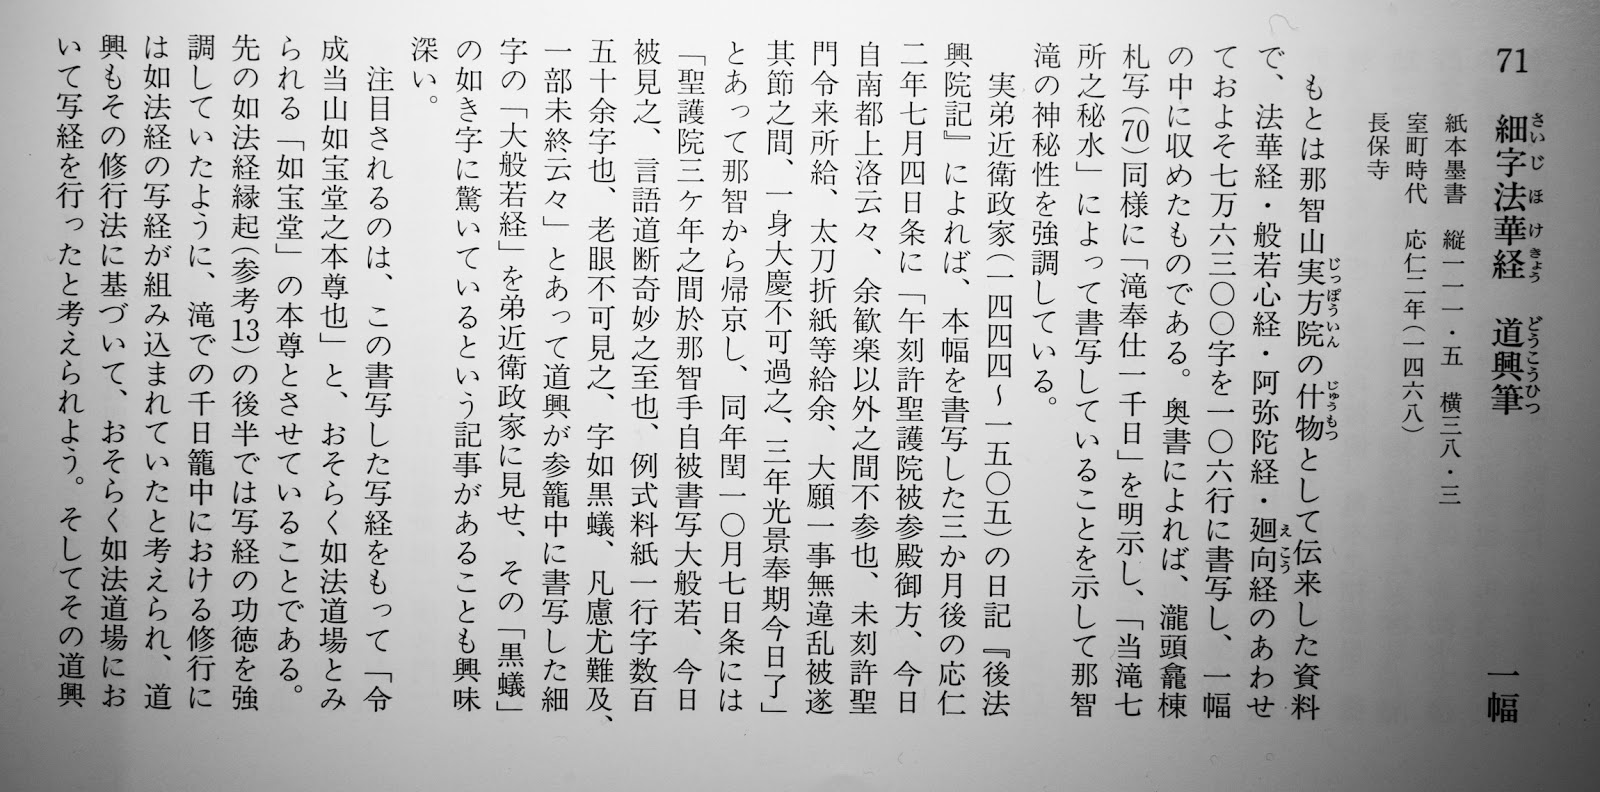 71 細字法華経 道興筆 一幅
さいじほけきょう どうこうひつ
紙本墨書 縦一一一・五 横三八・三
室町時代 応仁二年(一四六八)
長保寺
もとは那智山実方院の什物として伝来した資料
じっぽういん じゅうもつ
で、法華経・般若心経・阿弥陀経・廻向経のあわせ
えこう
ておよそ七万六三〇〇字を一〇六行に書写し、一幅
の中に収めたものである。奥書によれば、瀧頭龕棟
札写(70)同様に「滝奉仕一千日」を明示し、「当滝七
所之秘水」によって書写していることを示して那智
滝の神秘性を強調している。
実弟近衛政家(一四四四～一五〇五)の日記『後法
興院記』によれば、本幅を書写した三か月後の応仁
二年七月四日条に「午刻許聖護院被参殿御方、今日
自南都上洛云々、余歓楽以外之間不参也、未刻許聖
門令来所給、太刀折紙等給余、大願一事無違乱被遂
其節之間、一身大慶不可過之、三年光景奉期今日了」
とあって那智から帰京し、同年閏一〇月七日条には
「聖護院三ケ年之間於那智手自被書写大般若、今日
被見之、言語道断奇妙之至也、例式料紙一行字数百
五十余字也、老眼不可見之、字如黒蟻、凡慮尤難及、
一部未終云々」とあって道興が参籠中に書写した細
字の「大般若経」を弟近衛政家に見せ、その「黒蟻」
の如き字に驚いているという記事があることも興味
深い。
注目されるのは、この書写した写経をもって「令
成当山如宝堂之本尊也」と、おそらく如法道場とみ
られる「如宝堂」の本尊とさせていることである。
先の如法経縁起(参考13)の後半では写経の功徳を強
調していたように、滝での千日籠中における修行に
は如法経の写経が組み込まれていたと考えられ、道
興もその修行法に基づいて、おそらく如法道場にお
いて写経を行ったと考えられよう。そしてその道興